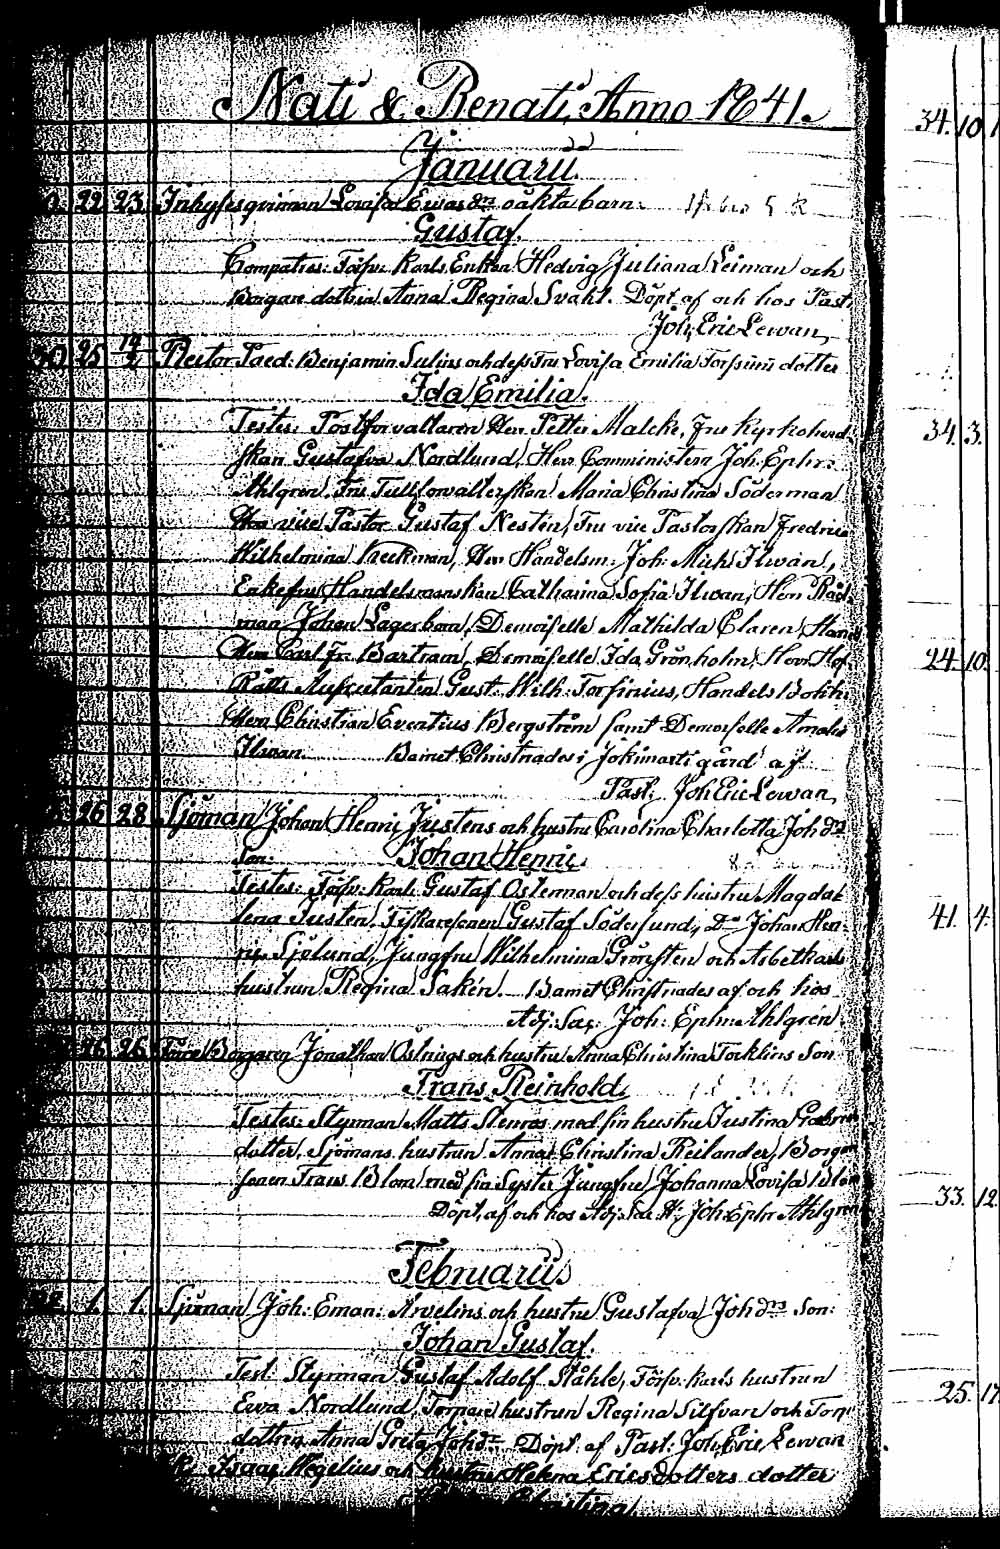 Nati & Renati, Anno 1841.
Januarii.
22 23 Inhysesqvinnan Lovisa Ewas dr oäkta barn.
Gustaf.
Compatres: Förfu: Karls Enkan Hedvig Juliana Leiman och
Borgare dottra Anna Regina Svahl. Döpt af och hos Past.
Joh. Eric Lewan,
30 25 19/2 Rector Paed: Benjamin Sulins och dess Fru Lovisa Emilia Torfinii dotter
Ida Emilia.
Testes: Postforvaltaren Herr Petter Malcke, Fru Kyrkoherd-
skan Gustafva Nordlund, Herr Comministern Joh. Ephr:
Ahlgren, Fru Tullforvalterskan Maria Christina Söderman
Herr vice Pastor Gustaf Nesten, Fru vice Pastorskan Fredrica
Wilhelmina Heckman, Herr Handelsm: Joh: Mich: Ilwan,
Enkefru Handelsmanskan Catharina Sofia Ilwan, Herr Råd-
man Johan Lagerbom, Demoiselle Mathilda Claren,
Herr Carl Fr. Bartram, Demoiselle Ida Grönholm, Herr Hof
Rätts Auscultanten Gust. Wilh. Torfinius, Handels Bokh:
Herr Christian Eventius Bergström samt Demoiselle Amalia
Ilwan. Barnet Christnades i Jokimarti gård af
Past. Joh Eric Lewan,
26 28 Sjöman Johan Henric Justens och hustru Carolina Charlotta Joh drs
Son: Johan Henric.
Testes: Förfv: Karls Gustaf Osterman och dess hustru Magda-
lena Justen, Fiskaresonen Gustaf Söderlund, Do Johan Hen-
ric Sjölund, Jungfru Wilhelmina Grönsten och Arbetkarls
hustrun Regina Saken. Barnet Christnades af och hos
Adj: Sac: Joh: Ephr: Ahlgren.
26 26 Borgaren Jonathan Östrings och hustru Anna Christina Torklins Son
Frans Reinhold.
Testes: Styrman Matts Stenros med sin hustru Justina
dotter, Sjömans hustrun Anna Christina Reilander, Borgar
sonen Frans Blom med sin Syster Jungfru Johanna Lovisa Blom
Döpt af och hos Adj: Sac: Joh: Ephr Ahlgren
Februarii
1. 1. Sjöman Joh: Eman: Arvelins och hustru Gustafva Joh drs Son:
Johan Gustaf.
Test: Styrman Gustaf Adolf Ståhle, Förfv: karls hustrun
Ewa Nordlund, Torpare hustrun Regina Silfvan och Torp
dottren Anna Greta Joh dr Döpt af Past: Joh. Eric Lewan
Isaac Hegelius och hustru Helena Ericsdotters dotter
Christina
34. 10
34. 3.
24. 10.
41. 4.
33. 12.
25. 17